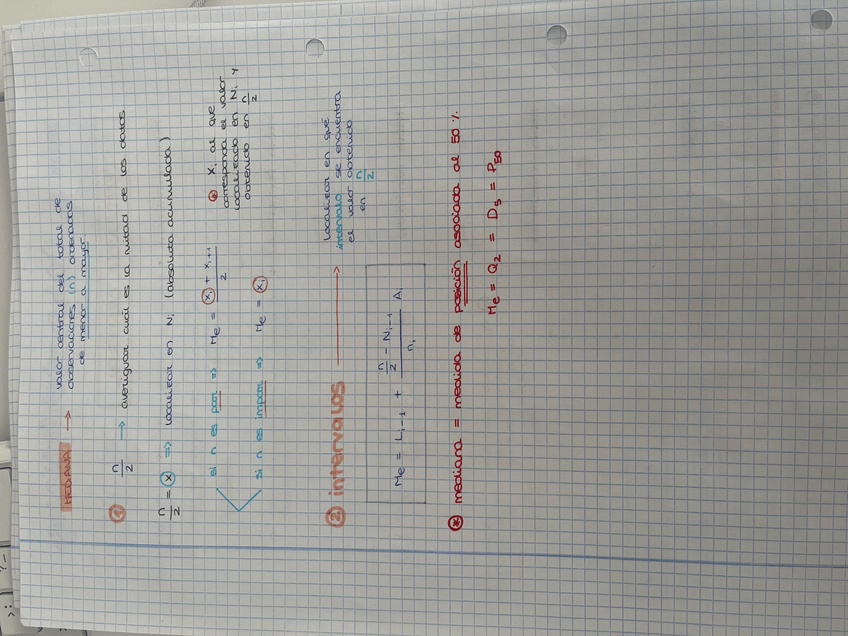 MEDIANA → valor central del total de
observaciones (n) ordenados
de menor a mayor.
① n/2 → averiguar cuál es la mitad de los datos
n/2 = x ⇒ localizar en Ni (absoluta acumulada)
si n es par ⇒ Me = xi + xi+1 / 2
si n es impar ⇒ Me = xi
* xi al que
corresponda el valor
localizado en Ni y
obtenido en n/2
② intervalos → localizar en qué
intervalo se encuentra
el valor obtenido
en n/2
Me = Li-1 + (n/2 - Ni-1) / ni Ai
* mediana = medida de posición asociada al 50 %.
Me = Q2 = D5 = P50